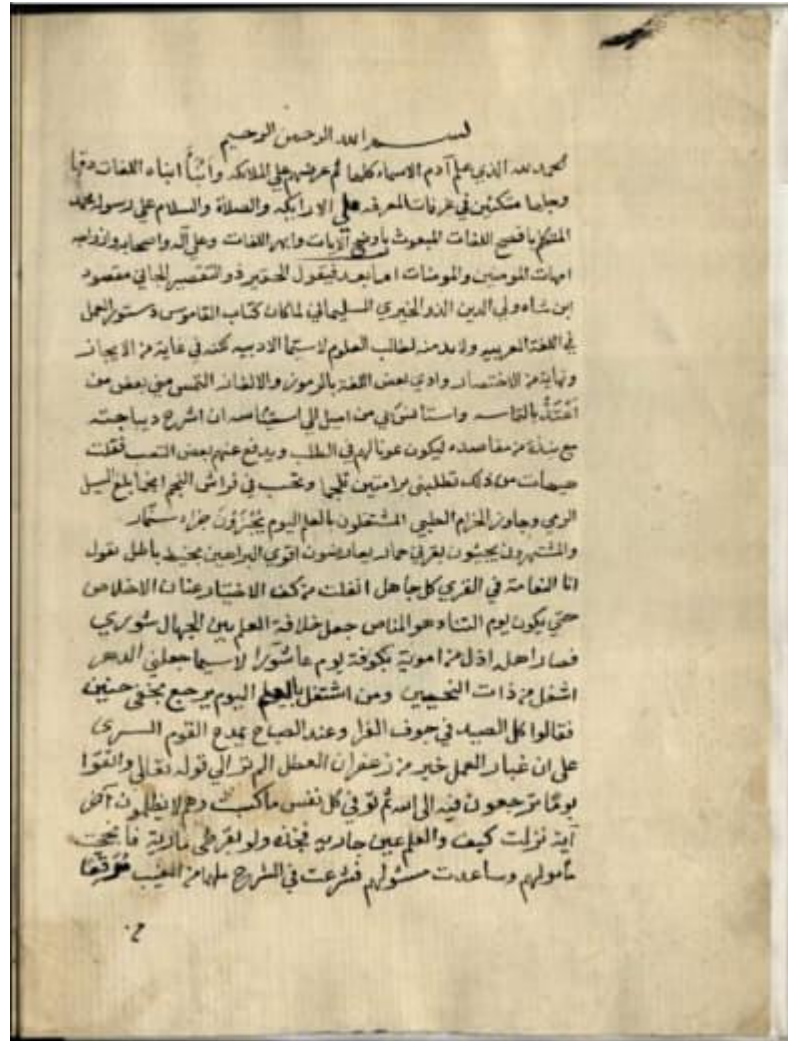 بسم الله الرحمن الرحيم
الحمد لله الذي علم آدم الاسماء كلها ثم عرضهم علي الملائكه وانبأ ابناه اللغات دقها
وجلها متكئين في غرفات المعرفه علي الارايكه والصلاة والسلام علي رسوله محمد
المتكلم بافصح اللغات المبعوث باوضح الايات وابهر اللغات وعلي آله واصحابه وازواجه
امهات المومنين والمومنات اما بعد فيقول الحقير ذو التقصير الجاني مقصود
ابن شاه ولي الدين الذر الخيري السليماني لما كان كتاب القاموس دستور العمل
في اللغة العربيه ولابد منه لطالب العلوم لاسيما الادبيه لكنه في غاية من الايجاز
ونهاية من الاختصار وادي بعض اللغة بالرموز والالغاز التمس مني بعض من
اعتد بالتماسه واستانس بي من اميل الي استيناسه ان اشرح ديباجته
مع نبذة من مقاصده ليكون عونا لهم في الطلب ويدفع عنهم بعض التعب فقلت
هيهات من ذلك تطلبني برامتين تلجما وتحسب في فراش النجم انجما بلغ السيل
الربي وجاوز الحزام الطبي المشتغلون بالعلم اليوم يجزون جزاء سنمار
والمشتهرون يجيئون بقرني حمار يعارضون اقوي البراهين بخيط باطل تقول
انا النعامة في القري كل جاهل انفلت من كف الاختيار عنان الاخلاص
حتي يكون يوم التناد هو المناص جعل خلافة العلم بين الجهال شوري
فصار اهله اذل من اموية بكوفة يوم عاشورا لاسيما جعلني الدهر
اشغل من ذات النحيين ومن اشتغل بالعلم اليوم يرجع بخفي حنين
فقالوا كل الصيد في جوف الفرا وعند الصباح يمدح القوم السري
علي ان غبار العمل خير من زعفران العطل الم تر الي قوله تعالي واتقوا
يوما ترجعون فيه الي الله ثم توفي كل نفس ما كسبت وهم لا يظلمون آخر
آية نزلت كيف والعلم عين جاريه فخذه ولو بقرطي ماريه فانجحت
مأمولهم وساعدت مسئولهم فشرعت في الشرح ملهما من الغيب موفقا